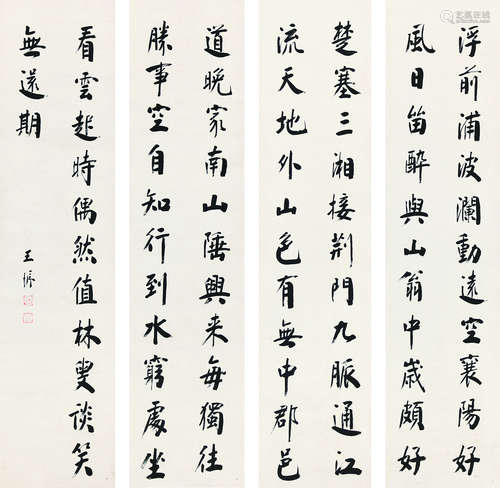 浮前浦波瀾動遠空襄陽好
風日留醉與山翁中歲頗好
楚塞三湘接荆門九脈通江
流天地外山色有無中郡邑
道晚家南山陲興来每獨往
勝事空自知行到水窮處坐
看雲起時偶然值林叟談笑
無還期
王